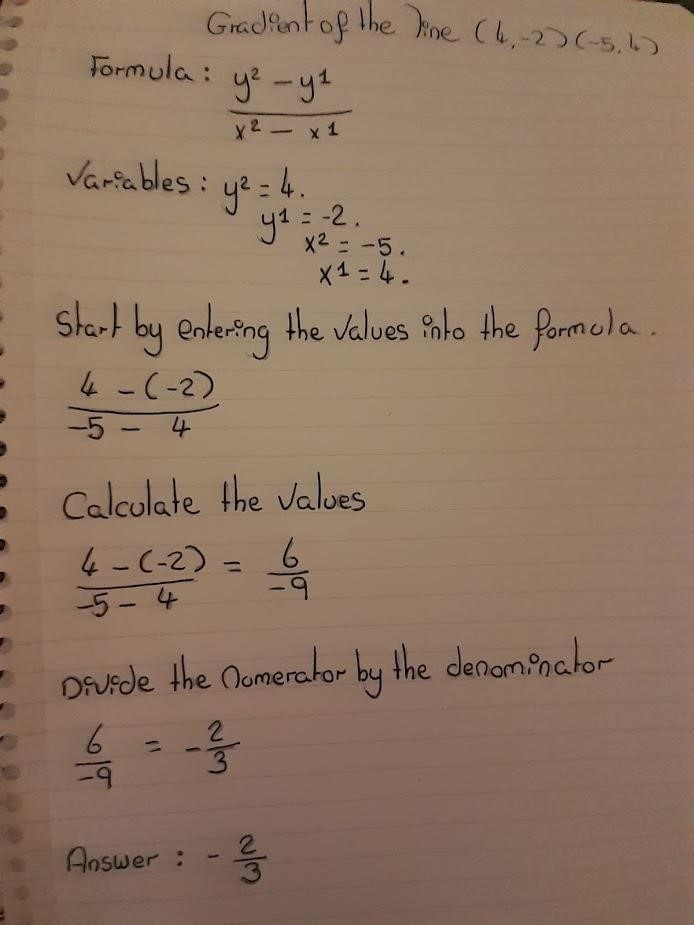 Gradient of the line (4,-2)(-5,4)
Formula: y² - y1
x² - x1
Variables: y² = 4.
y1 = -2.
x² = -5.
x1 = 4.
Start by entering the values into the formula.
4 - (-2)
-5 - 4
Calculate the values
4 - (-2) = 6
-5 - 4 -9
Divide the numerator by the denominator
6 = - 2
-9 3
Answer: - 2
3